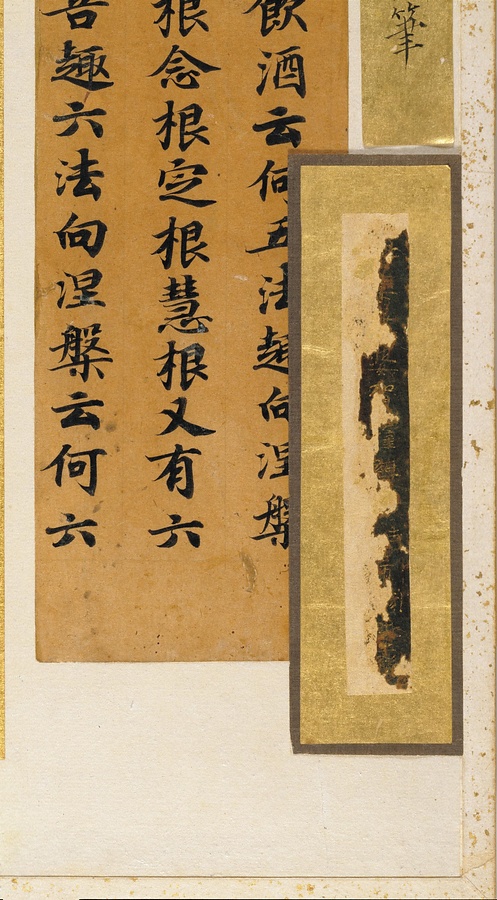 筆
飲酒云何五法趣向涅槃
根念根定根慧根又有六
苦趣六法向涅槃云何六